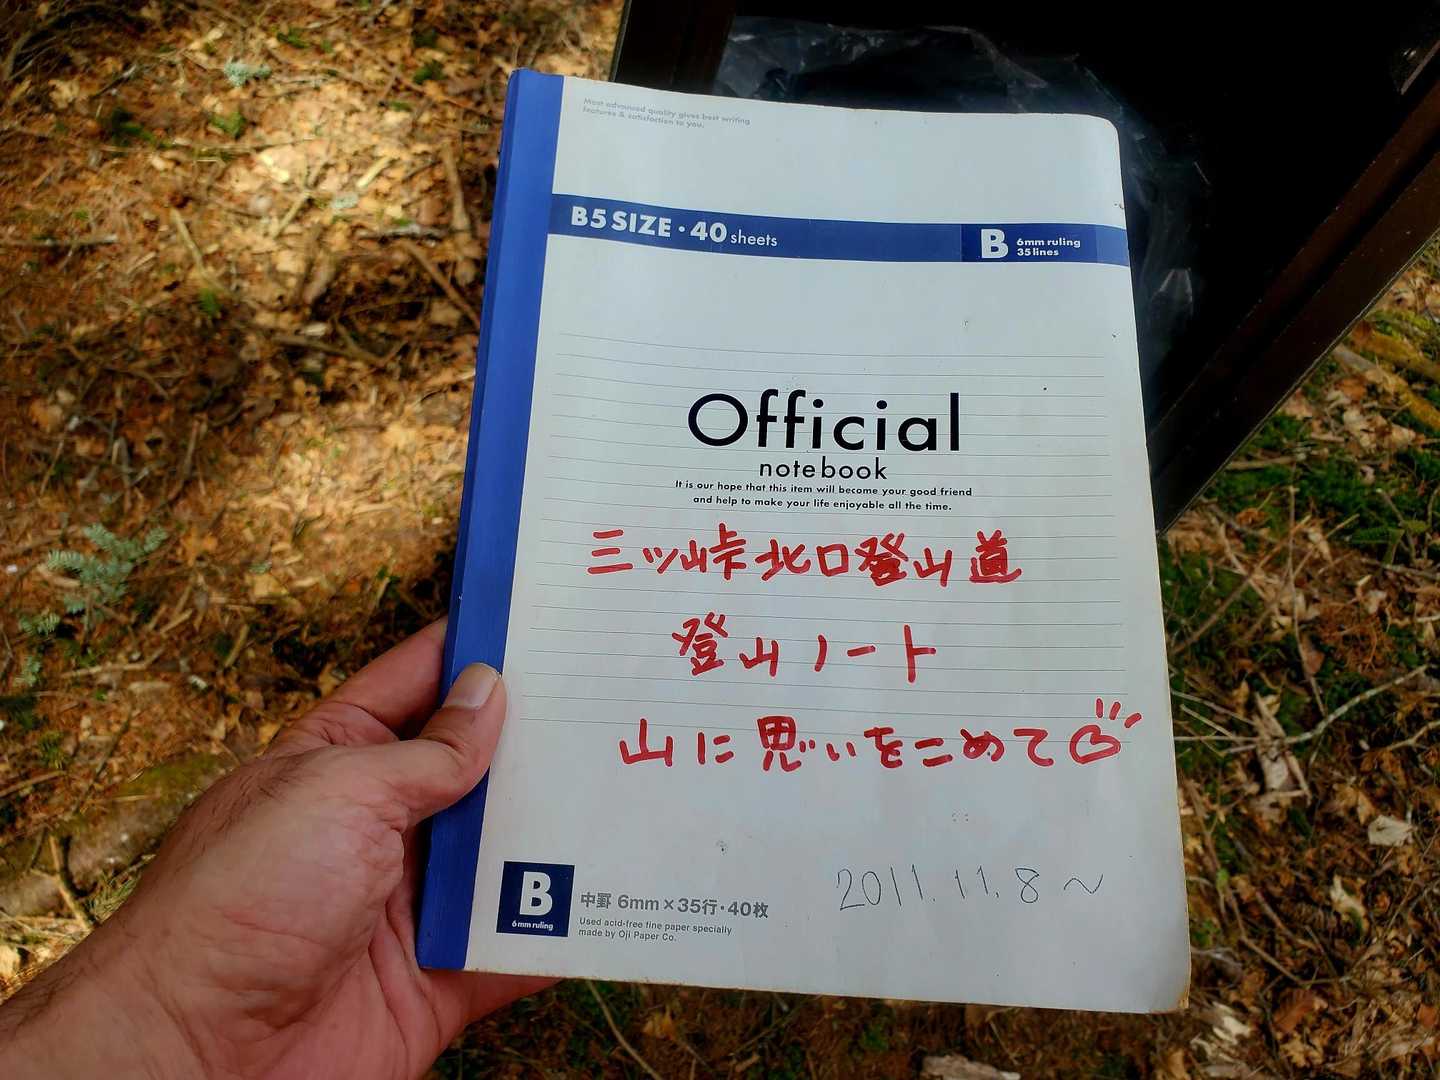 Most advanced quality gives best writing
features & satisfaction to you.
B5 SIZE・40 sheets
B 6mm ruling
35 lines
Official
notebook
It is our hope that this item will become your good friend
and help to make your life enjoyable all the time.
三ツ峠北口登山道
登山ノート
山に思いをこめて
2011.11.8～
B
6mm ruling
中罫 6mm×35行・40枚
Used acid-free fine paper specially
made by Oji Paper Co.